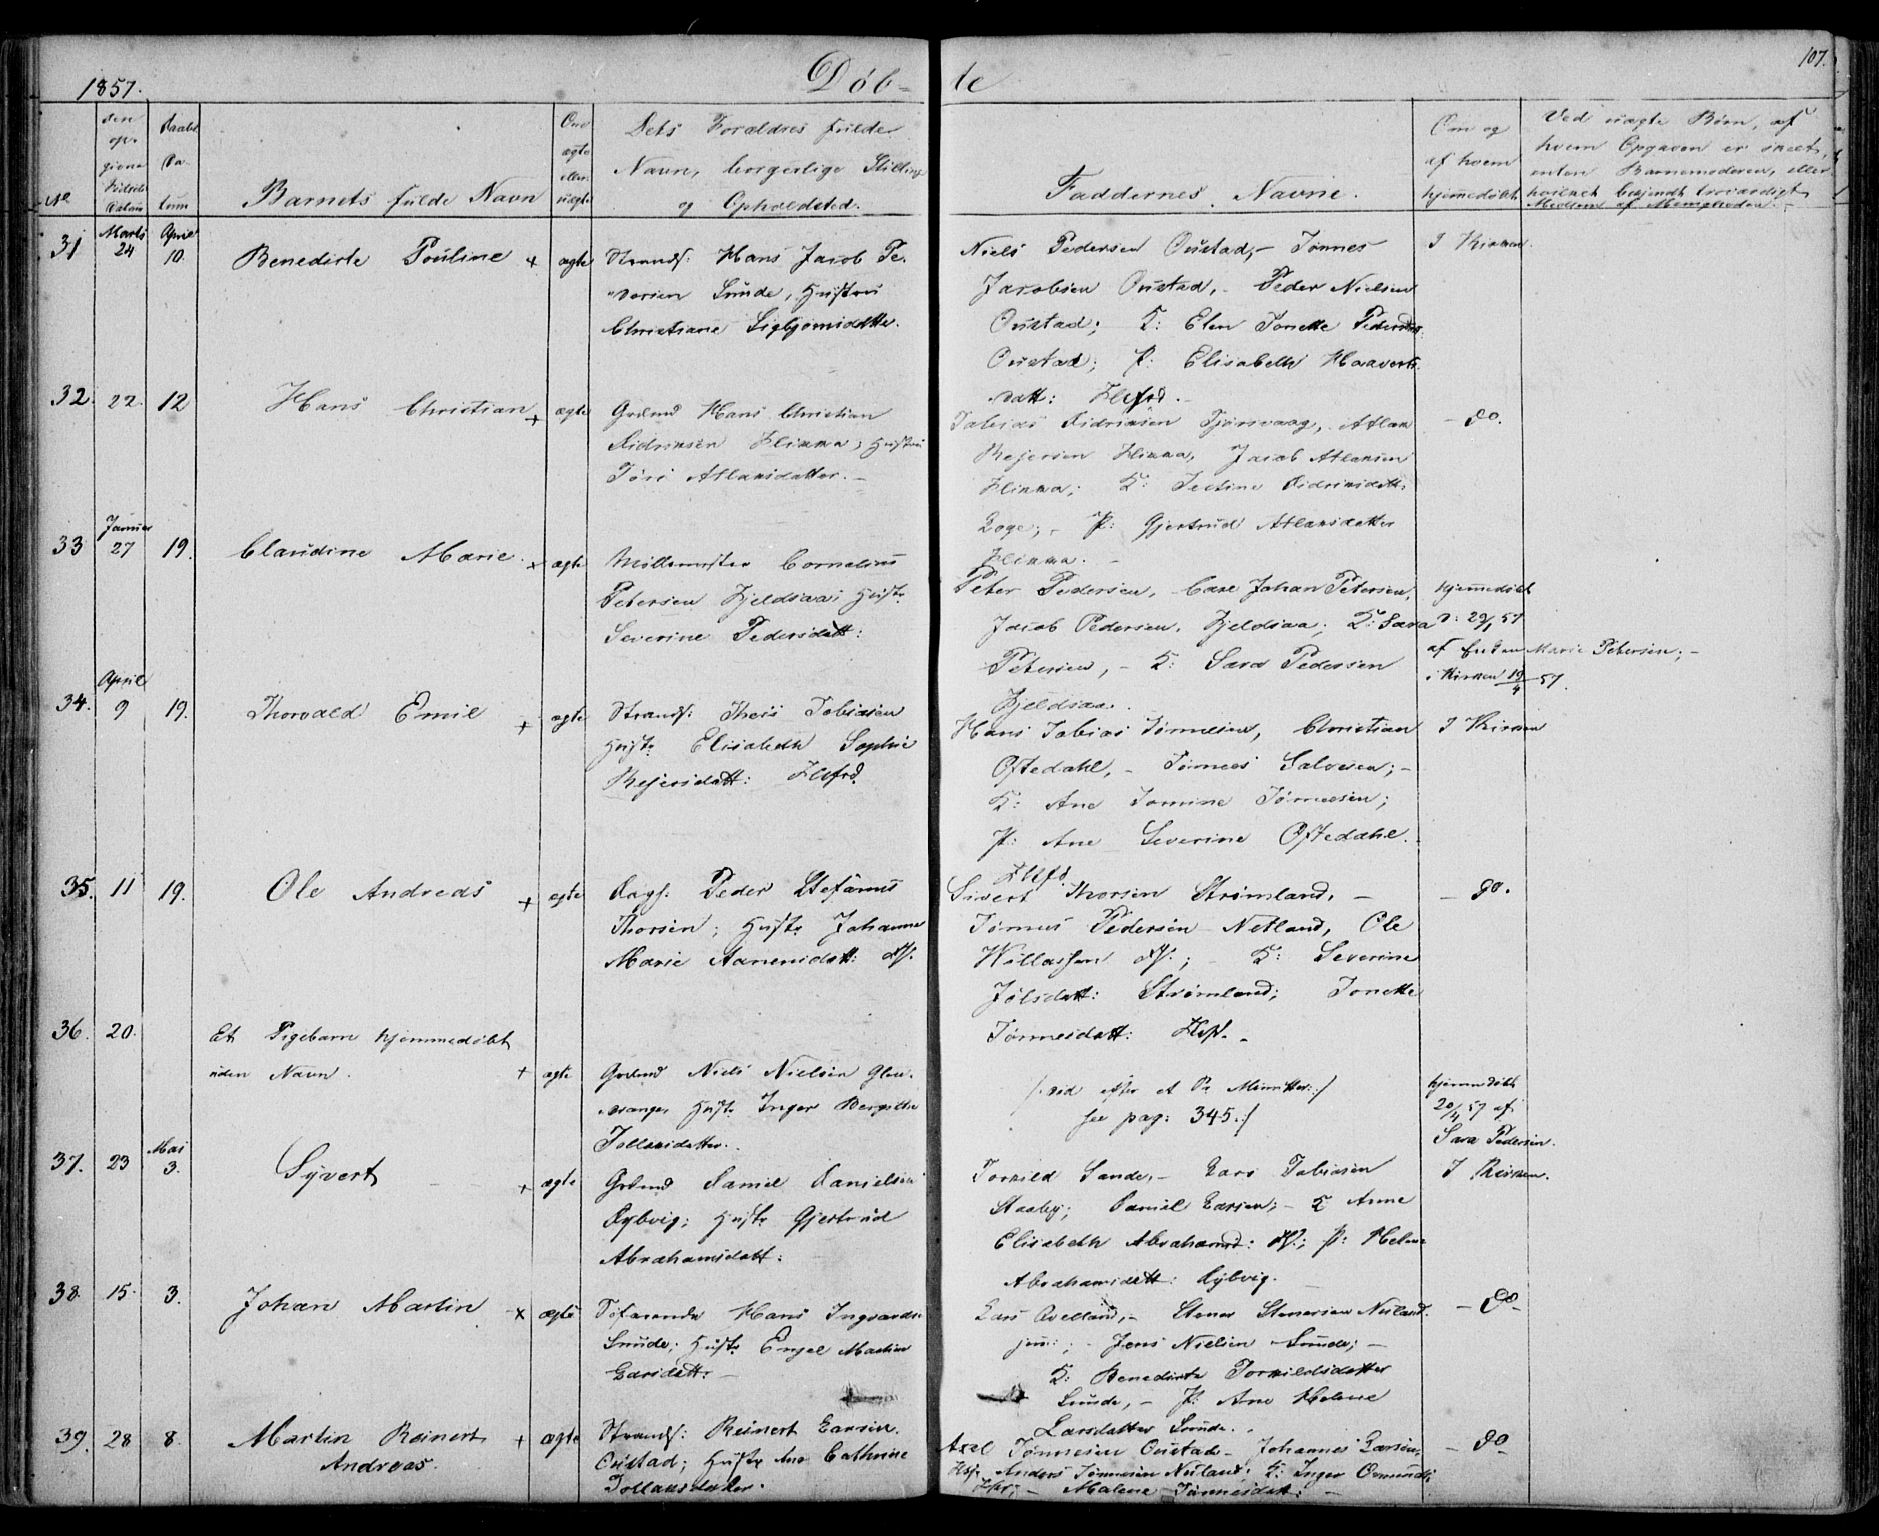 1857.
Døb-
te
107.
No
den opgivne Fødsels Datum
Daabs Datum
Barnets fulde Navn
Om ægte eller uægte
Dets Forældres fulde
Navn, borgerlige Stilling
og Opholdsted.
Faddernes Navne.
Om og
af hvem
hjemmedøbt
Ved uægte Børn, af
hvem Opgaven er skeet,
enten Barnemoderen, eller
hvilket bekjendt troværdigt
Medlem af Menigheden.
31 Marts 24 April 10. Benedicte Pouline + ægte
Strands: Hans Jacob Pe-
dersen Sunde, Hustru
Christiane Sigbjørnsdatter.
Niels Pedersen Oustad, - Tønnes
Jacobsen Oustad, - Peder Nielsen
Oustad; K: Elen Tonette Pedersdtr.
Oustad; P: Elisabeth Haaverts-
datt: Flefrd.
I Kirken.
32. 22. 12 Hans Christian + ægte
Grdmd Hans Christian
Didriksen Flikka; Hustru
Tøri Atlaksdatter. -
Tobias Didriksen Tjørsvaag, Atlak
Rejersen Flikka, Jacob Atlaksen
Flikka; K: Didriksdatt:
Loge; - P: Gjertrud Atlaksdatter
Flikka. -
- do.
33 Januar 27 19. Claudine Marie. + ægte
Møllemester Cornelius
Petersen Fjeldsaa; Hustr.
Severine Pedersdatt:
Peter Pedersen, Carl Johan Petersen,
Jacob Pedersen, Fjeldsaa; K: Sara
Petersen, - K: Sara Pedersen
Fjeldsaa.
hjemmedøbt
d: 29/1 57
af Enken Marie Petersen; -
i Kirken 19/4 57.
34. April 9 19. Thorvald Emil + ægte
Strands: Theis Tobiasen
Hustr. Elisabeth Sophie
Rejersdatt: Flefrd.
Hans Tobias Tønnesen, Christian
Oftedahl, - Tønnes Salvesen; -
K: Ane Tomine Tønnesen;
P: Ane Severine Oftedahl.
Flefd.
I Kirken
35. 11 19. Ole Andreas + ægte
Dags: Peder Stefanus
Thorsen; Hustr. Johanne
Marie Aanensdatt: Hs.
Sivert Thorsen Strømland, -
Tønnes Pedersen Netland, Ole
Willassen Hs.; - K: Severine
Jølsdatt: Strømland; Tonette
Tønnesdatt: Flef. -
- do.
36. 20. Et Pigebarn hjemmedøbt
uden Navn. + ægte
Grdmd Niels Nielsen Glen-
drange, Hustr. Inger Bergitte
Tollaksdatter.
/: død efter et Par Minutter :/
see pag: 345. :/
hjemmedøbt
20/4 57 af
Sara Pedersen.
37. 23 Mai 3. Syvert + ægte
Grdmd Daniel Danielsen
Dybvig; Hustr. Gjertrud
Abrahamsdatt:
Torkild Sande, - Lars Tobiasen
Staaby; Daniel Larsen; - K Anne
Elisabeth Abrahamsd: Hs.; P: Helene
Abrahamsdatt: Dybvig.
I Kirken.
38. 15. 3. Johan Martin + ægte
Søfarende Hans Ingvardsen
Sunde; Hustr. Engel Martine
Larsdatt: -
Lars Qvelland, - Stener Stenersen Nuland
jun: ; - Jens Nielsen Sunde; -
K: Benedicte Torkildsdatter
Sunde, - P: Ane Helene
Larsdatter Sunde.
- do -
39. 28 8. Martin Reinert
Andreas. + ægte
Strands: Reinert Larsen
Oustad; Hustr. Ane Cathrine
Tollaksdatter.
Axel Tønnesen Oustad - Johannes Larsen
Anders Tønnesen Nuland; K: Inger Osmunds-
- Malene Tønnesdatt: -
- do